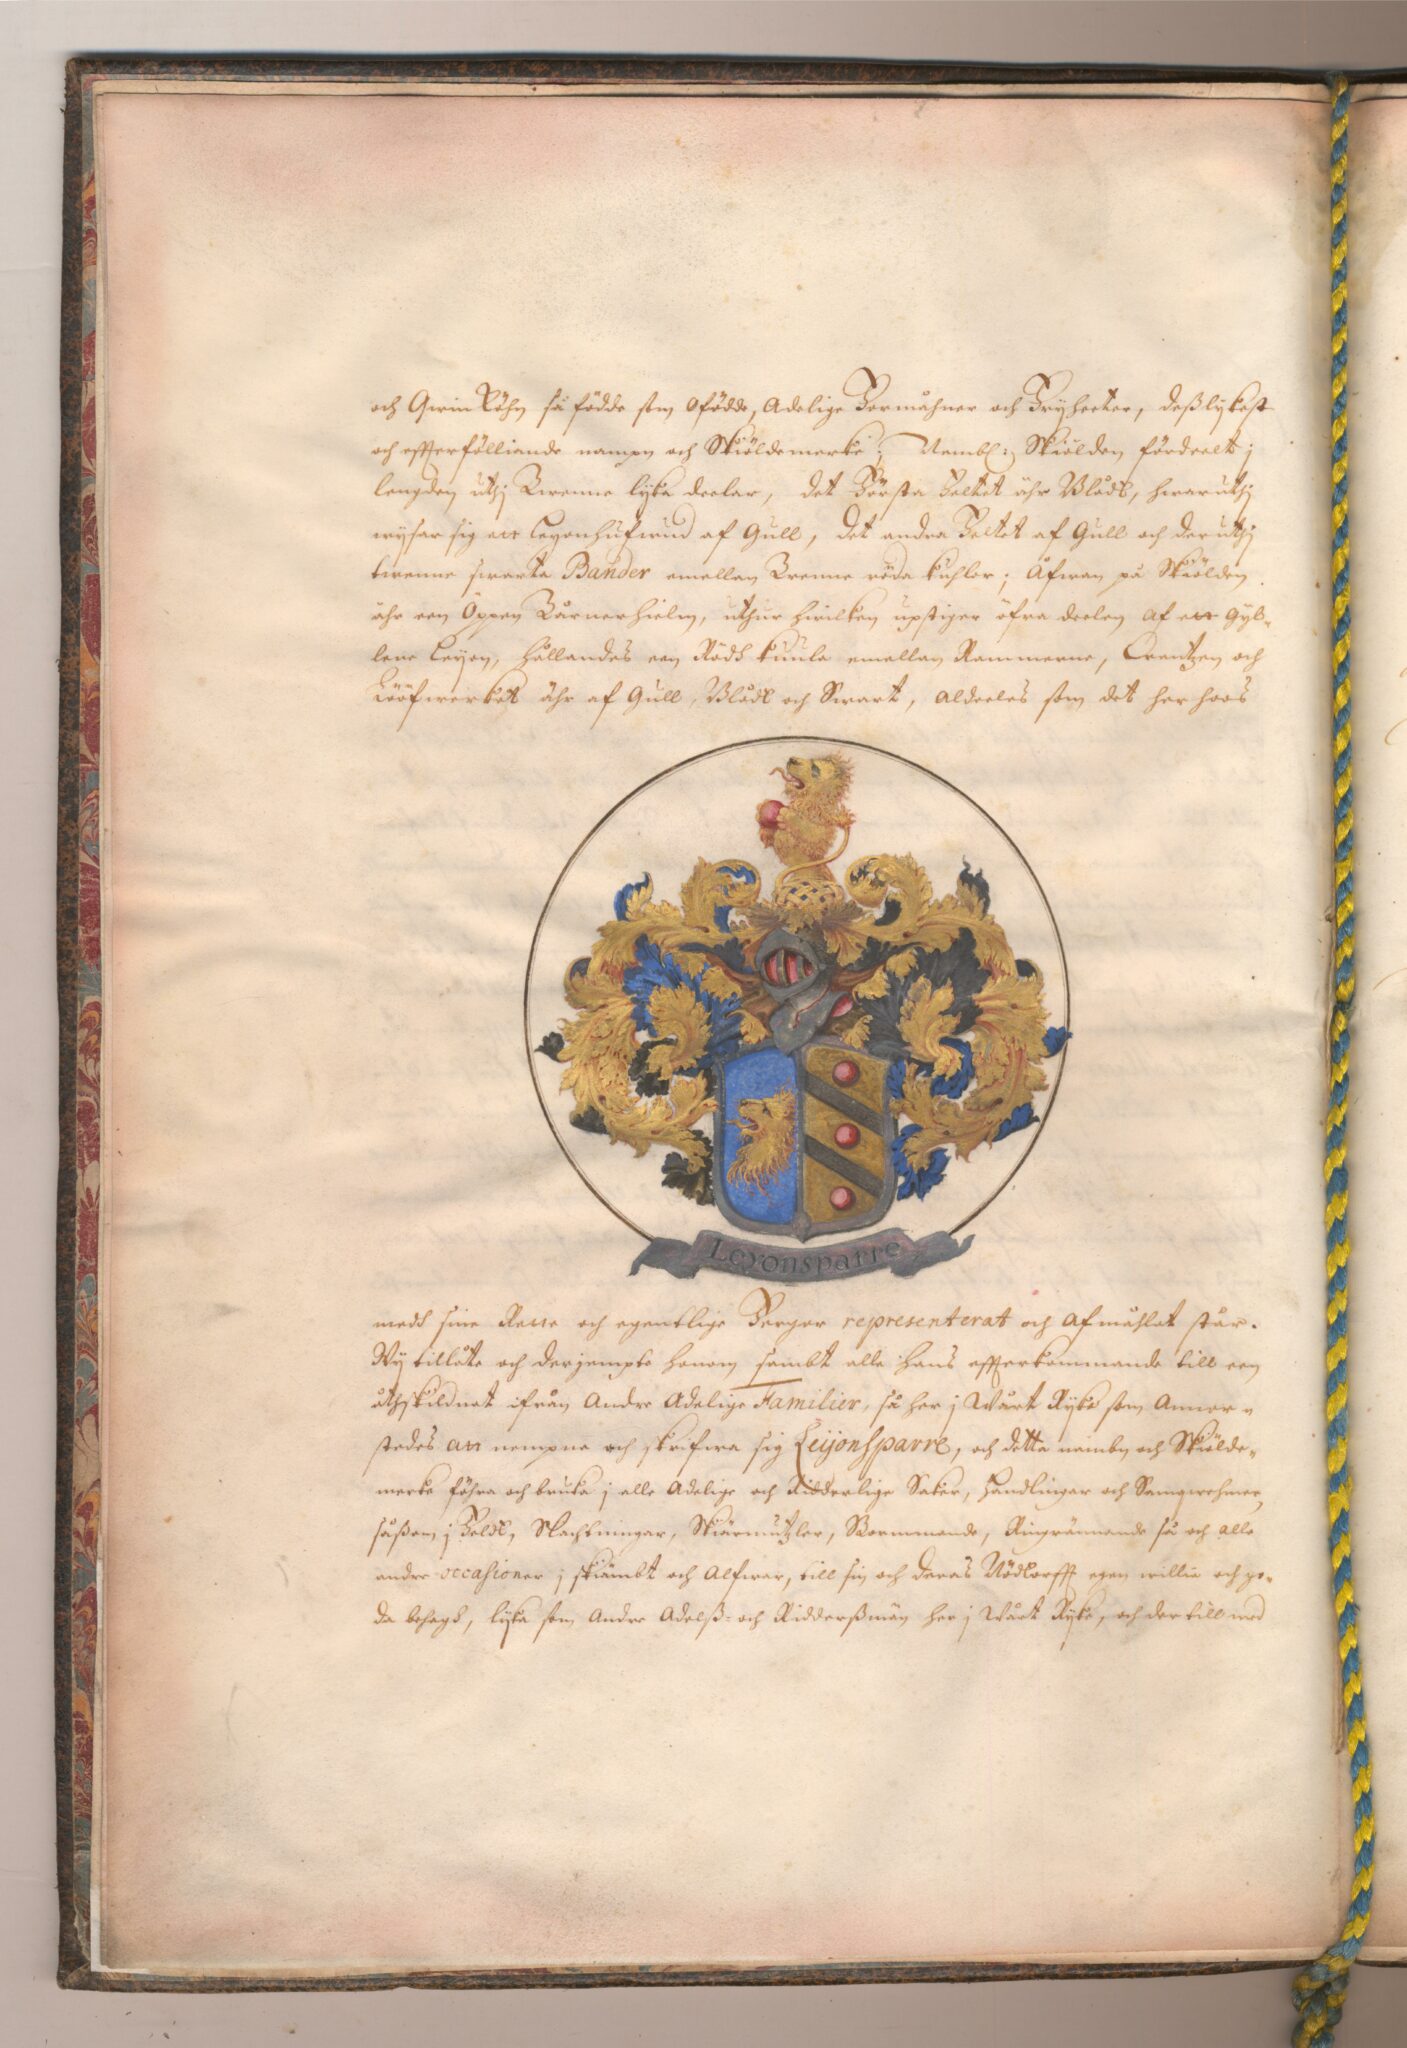 och Qwin Köhn så födde som ofödde, Adelige Förmåhner och Fryheeter, deßlykest
och effterfölliande nampn och Skiöldemerke; Nembl: Skiölden fördeelt i
lengden uthj Twenne lyka deelar, det Första Feltet ähr Blådt, hwaruthj
wysar sig ett Leyonhufwud af Gull, det andra Feltet af Gull och deruthj
twenne swarta Bander emellan Trenne röda kuhlor; Åfwan på Skiölden
ähr een Öppen Törnerhielm, uthur hwilken upstiger öfra deelen af ett Gyl-
lene Leyon, hållandes een Rödh kuula emellan Rammerne, Crantzen och
Lööfwerket ähr af Gull, Blådt och Swart, aldeeles som det her hoos
Leyonsparre
medh sine Rette och egentlige Ferger representerat och afmåhlat står.
Wy tillåte och derjempte honom sambt alle hans effterkommande till een
åthskildnat ifrån Andre Adelige Familier, så her j Wårt Ryke som Annor-
stedes att nempne och skrifwa sig Leijonsparre, och detta nambn och Skiölde-
merke föhra och bruka j alle Adelige och Ridderlige Saker, Handlingar och Samqwehmer,
såßom j Feldt, Slachtningar, Skiärmützler, Stormmande, Ringrännande så och alle
andre occasioner j skiämbt och Alfwar, till sin och deras Nödtorfft egen willie och go-
da behagh, lyka som Andre Adelß- och Riddersmän her j Wårt Ryke, och der till med